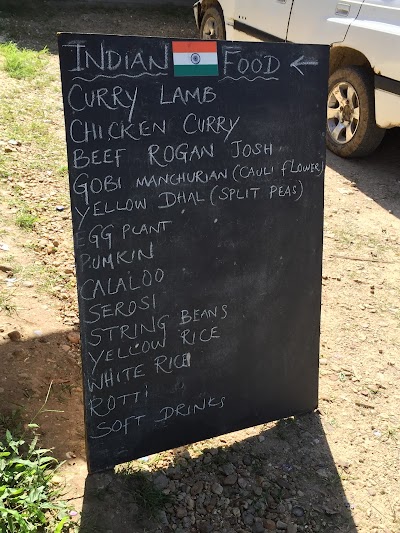 INDIAN FOOD ←
CURRY LAMB
CHICKEN CURRY
BEEF ROGAN JOSH
GOBI MANCHURIAN (CAULI FLOWER)
YELLOW DHAL (SPLIT PEAS)
EGG PLANT
PUMKIN
CALALOO
SEROSI
STRING BEANS
YELLOW RICE
WHITE RICE
ROTTI
SOFT DRINKS